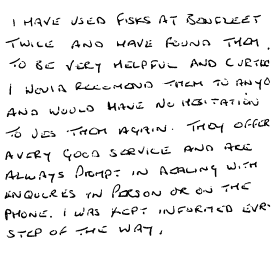 I HAVE USED FISKS AT BENFLEET
TWICE AND HAVE FOUND THEM
TO BE VERY HELPFUL AND CURTEO
I WOULD RECOMEND THEM TO ANYO
AND WOULD HAVE NO HESITATION
TO USE THEM AGAIN. THEY OFFER
A VERY GOOD SERVICE AND ARE
ALWAYS PROMPT IN DEALING WITH
ENQUIRES IN PERSON OR ON THE
PHONE. I WAS KEPT INFORMED EVERY
STEP OF THE WAY.